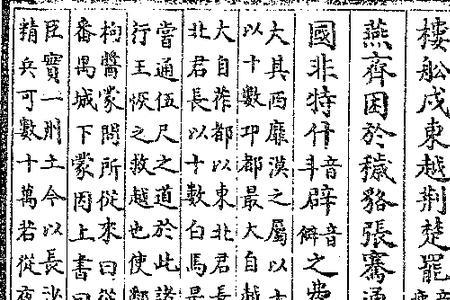 樓舩戍東越荆楚罷
燕齊困於穢貉張騫通
國非特什音斗辟音僻之費
大其西靡漠之屬以十
以十數卭都最大自越
大自莋都以東北君長
北君長以十數白馬是
當通伍尺之道於此諸
行王恢之救越也使鄱
枸醬蒙問所從來曰從
番禺城下蒙因上書曰
臣寶一州土今以長沙
精兵可數十萬若從夜